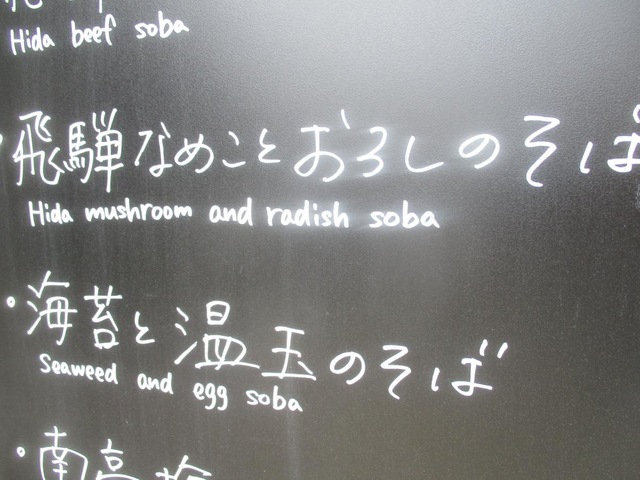 Hida beef soba
飛騨なめことおろしのそば
Hida mushroom and radish soba
・海苔と温玉のそば
Seaweed and egg soba
・南高梅